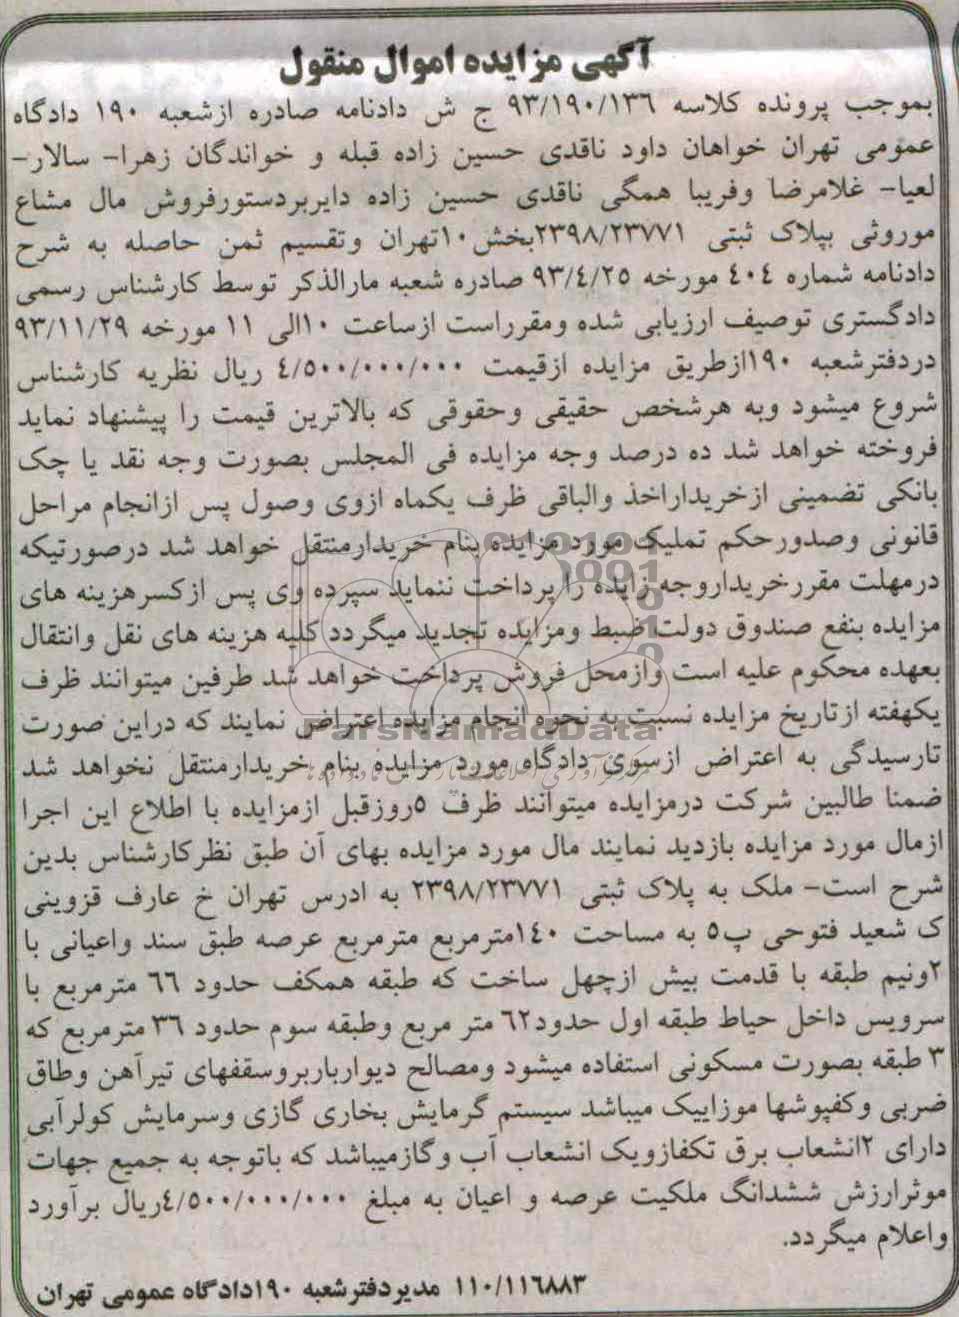 آگهی مزایده اموال منقول
بموجب پرونده کلاسه ۹۳/۱۹۰/۱۳٦ ج ش دادنامه صادره ازشعبه ۱۹۰ دادگاه
عمومی تهران خواهان داود ناقدی حسین زاده قبله و خواندگان زهرا- سالار-
لعیا- غلامرضا وفریبا همگی ناقدی حسین زاده دایربردستورفروش مال مشاع
موروثی بپلاک ثبتی ۲۳۹۸/۲۳۷۷۱بخش۱۰تهران وتقسیم ثمن حاصله به شرح
دادنامه شماره ٤۰٤ مورخه ۹۳/٤/۲۵ صادره شعبه مارالذکر توسط کارشناس رسمی
دادگستری توصیف ارزیابی شده ومقرراست ازساعت ۱۰الی ۱۱ مورخه ۹۳/۱۱/۲۹
دردفترشعبه ۱۹۰ازطریق مزایده ازقیمت ٤/۵۰۰/۰۰۰/۰۰۰ ریال نظریه کارشناس
شروع میشود وبه هرشخص حقیقی وحقوقی که بالاترین قیمت را پیشنهاد نماید
فروخته خواهد شد ده درصد وجه مزایده فی المجلس بصورت وجه نقد یا چک
بانکی تضمینی ازخریداراخذ والباقی ظرف یکماه ازوی وصول پس ازانجام مراحل
قانونی وصدورحکم تملیک مورد مزایده بنام خریدارمنتقل خواهد شد درصورتیکه
درمهلت مقررخریداروجه زایده را پرداخت ننماید سپرده وی پس ازکسرهزینه های
مزایده بنفع صندوق دولت ضبط ومزایده تجدید میگردد کلیه هزینه های نقل وانتقال
بعهده محکوم علیه است وازمحل فروش پرداخت خواهد شد طرفین میتوانند ظرف
یکهفته ازتاریخ مزایده نسبت به نحوه انجام مزایده اعتراض نمایند که دراین صورت
تارسیدگی به اعتراض ازسوی دادگاه مورد مزایده بنام خریدارمنتقل نخواهد شد
ضمنا طالبین شرکت درمزایده میتوانند ظرف ۵روزقبل ازمزایده با اطلاع این اجرا
ازمال مورد مزایده بازدید نمایند مال مورد مزایده بهای آن طبق نظرکارشناس بدین
شرح است- ملک به پلاک ثبتی ۲۳۹۸/۲۳۷۷۱ به ادرس تهران خ عارف قزوینی
ک شعید فتوحی پ۵ به مساحت ۱٤۰مترمربع مترمربع عرصه طبق سند واعیانی با
۲ونیم طبقه با قدمت بیش ازچهل ساخت که طبقه همکف حدود ٦٦ مترمربع با
سرویس داخل حیاط طبقه اول حدود٦۲ متر مربع وطبقه سوم حدود ۳٦ مترمربع که
۳ طبقه بصورت مسکونی استفاده میشود ومصالح دیوارباربروسقفهای تیرآهن وطاق
ضربی وکفپوشها موزاییک میباشد سیستم گرمایش بخاری گازی وسرمایش کولرآبی
دارای ۲انشعاب برق تکفازویک انشعاب آب وگازمیباشد که باتوجه به جمیع جهات
موثرارزش ششدانگ ملکیت عرصه و اعیان به مبلغ ٤/۵۰۰/۰۰۰/۰۰۰ریال برآورد
واعلام میگردد.
۱۱۰/۱۱٦۸۸۳ مدیردفترشعبه ۱۹۰دادگاه عمومی تهران
ParsNamadData